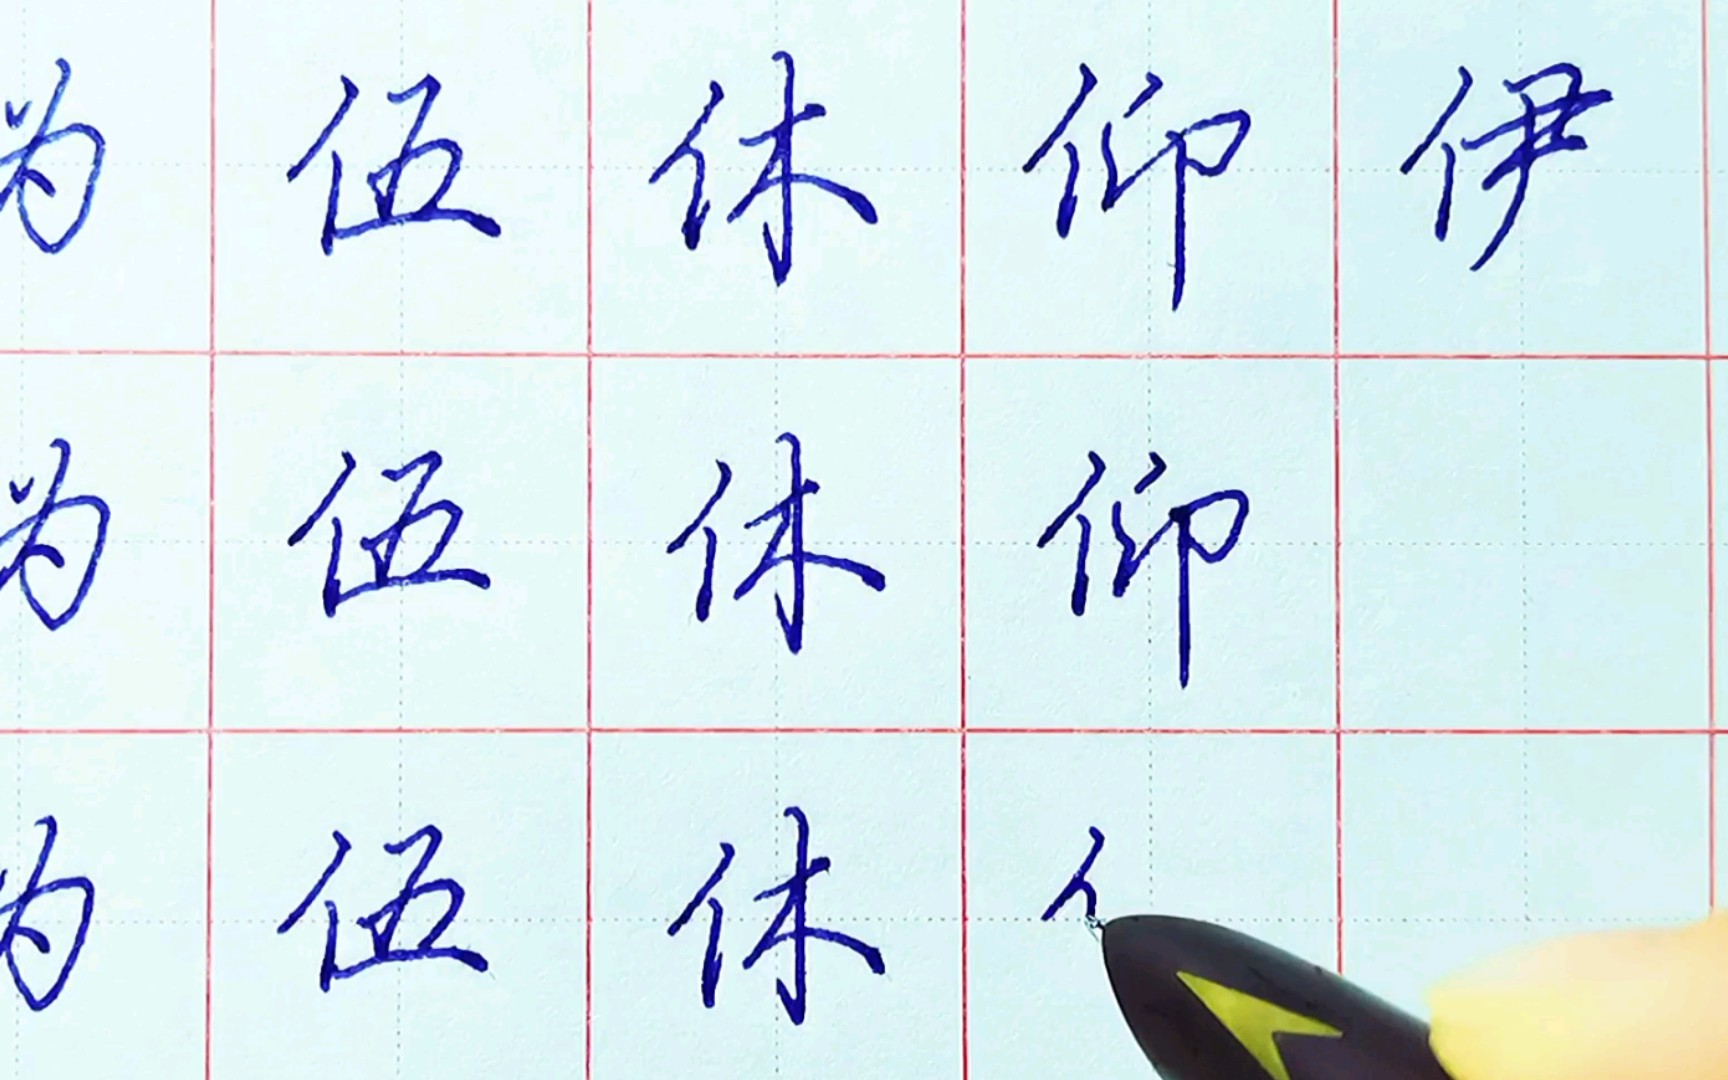 为伍休仰伊
为伍休仰
为伍休